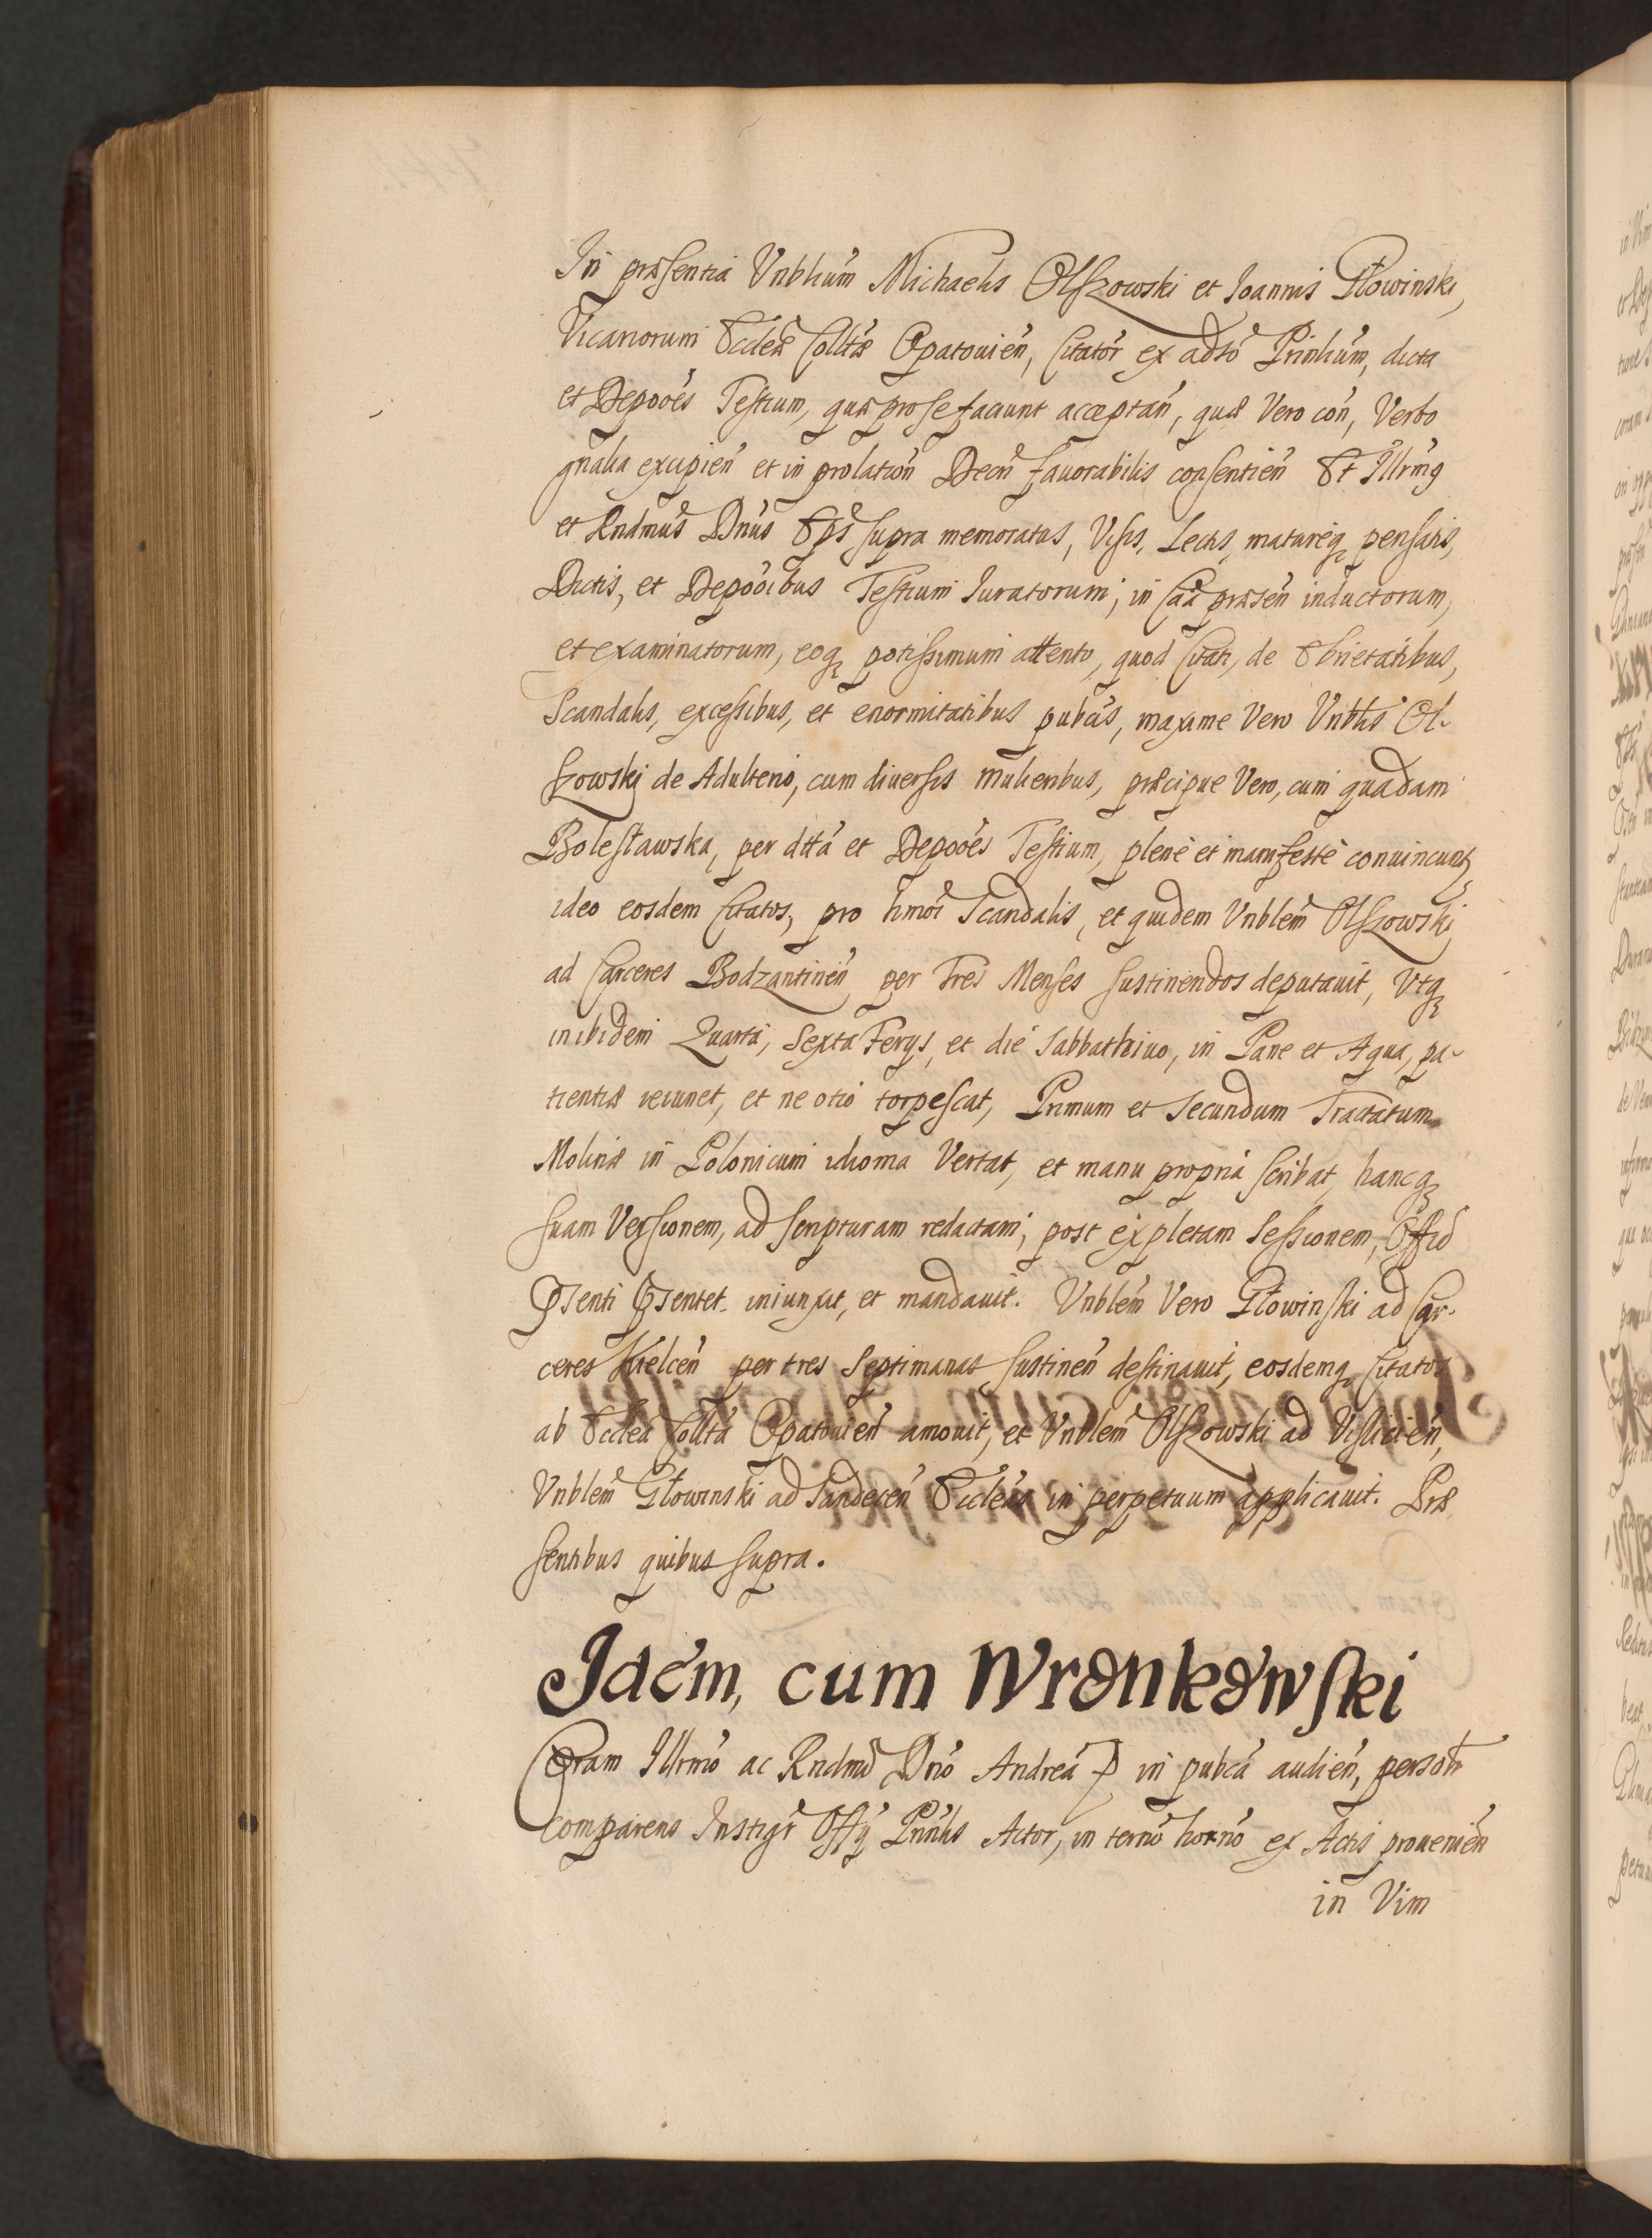 In præsentia Vnbliũm Michaelis Olszowski et Ioannis Głowinski,
Vicariorum Eccleæ Colltæ Opatouień, Citator̃ ex adso Prinliũm, dicta
et Depoões Testium, quæ pro se faciunt acceptań, quæ Vero coñ, Verbo
gñalia excipień et in prolatioń Decŕi fauorabilis consentień Et Illrmg
et Rndmus Dñus Eps̃ supra memoratus, Visis, Lectis, maturéq; pensatis,
Dictis, et Depoõibus Testium Iuratorum, in Caã præseń inductorum,
et examinatorum, eoq; potissimum attento, quod Citati, de Ebrietatibus,
Scandalis, excessibus, et enormitatibus pubcis, maxime Vero Vnblis Ol-
szowskj de Adulterio, cum diuersis mulieribus, præcipue Vero, cum quadam
Bolesławska, per dcta et Depoões Testium, plene et manifeste conuincunt;
ideo eosdem Citatos, pro hmoi Scandalis, et quidem Vnblem̃ Olszowskj
ad Carceres Bodzantineń per tres Menses sustinendos deputauit, Vtq;
inibidem Quarta, Sexta Ferijs, et die Sabbathiuo, in Pane et Aqua, pa-
tientiæ ieiunet, et ne otio torpescat, Primum et Secundum Tractatum
Molinæ in Polonicum idioma Vertat, et manu propria scribat, hancq;
suam Versionem, ad scripturam redactam, post expletam Sessionem, Offio
Pſenti Pſentet. iniunxit, et mandauit. Vnblem̃ Vero Głowinski ad Car-
ceres Kielceń per tres Septimanas sustineń destinauit, eosdemq; Citatos
ab Ecclea Collta Opatouień amouit, et Vnblem̃ Olszowski ad Vislicień,
Vnblem̃ Głowinski ad Sandeceń Eccleas in perpetuum applicauit. Præ
sentibus quibus supra.
Idem, cum Wronkowski
Coram Illrmo ac Rndmo Dño Andrea P in pubca audień, personlr
comparens Instigr̃ Offij Prinlis Actor, in termõ hornõ ex Actis prouenień
in Vim